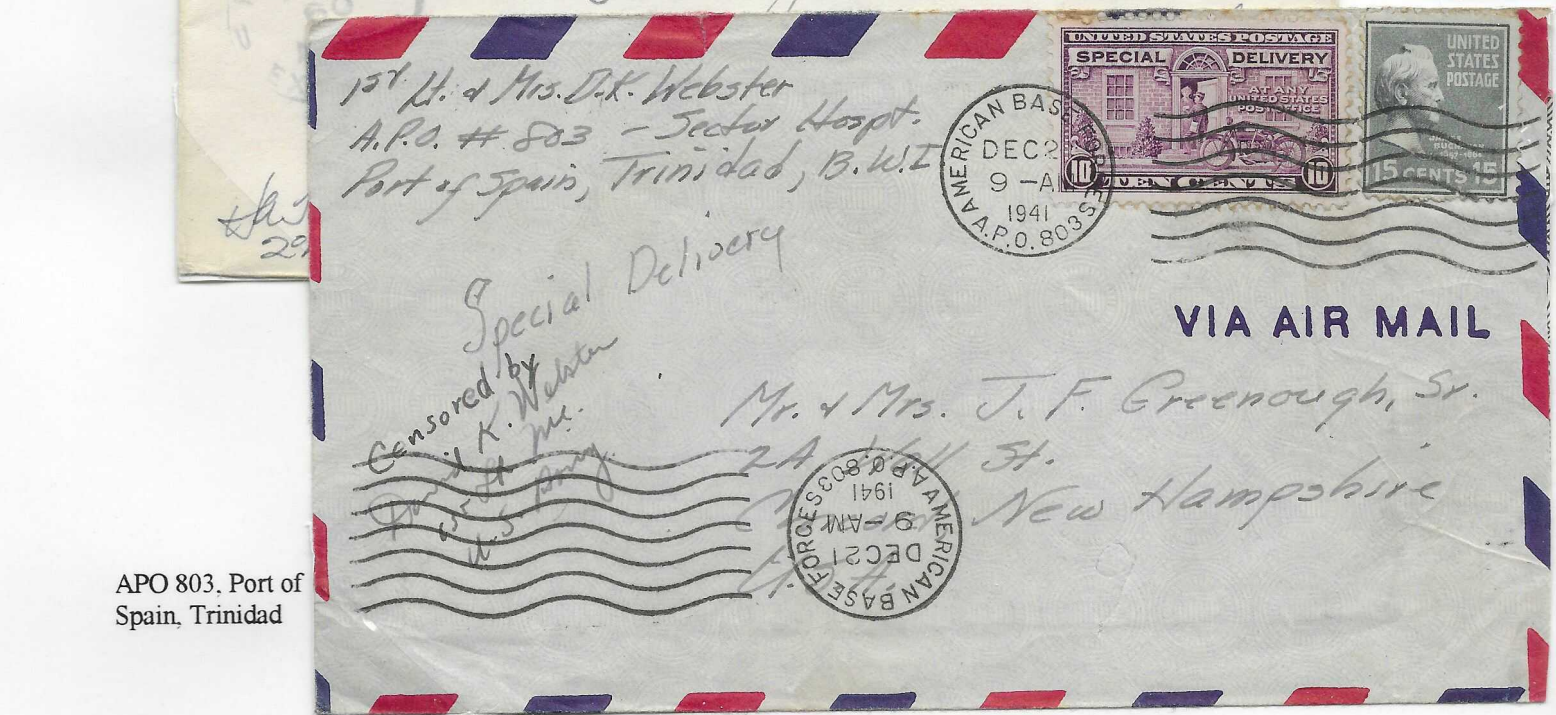 1st Lt. & Mrs. D.K. Webster
A.P.O. # 803 - Sector Hospt.
Port of Spain, Trinidad, B.W.I
UNITED STATES POSTAGE
SPECIAL DELIVERY
AT ANY
UNITED STATES
POST OFFICE
10 TEN CENTS 10
UNITED
STATES
POSTAGE
15 CENTS 15
AMERICAN BASE FORCES
DEC 2
9-A
1941
A.P.O. 803
Special Delivery
VIA AIR MAIL
Censored by
David K. Webster
1st Lt. M.C.
U.S. Army.
Mr. & Mrs. J. F. Greenough, Sr.
2A Wall St.
New Hampshire
U.S.A.
AMERICAN BASE FORCES
DEC 21
9-AM
1941
A.P.O. 803
APO 803, Port of
Spain, Trinidad